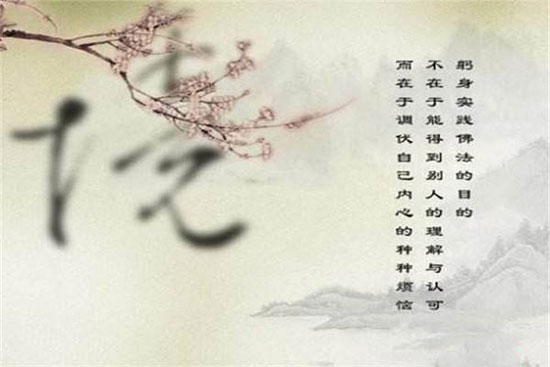 躬身实践佛法的目的
不在于能得到别人的理解与认可
而在于调伏自己内心的种种烦恼